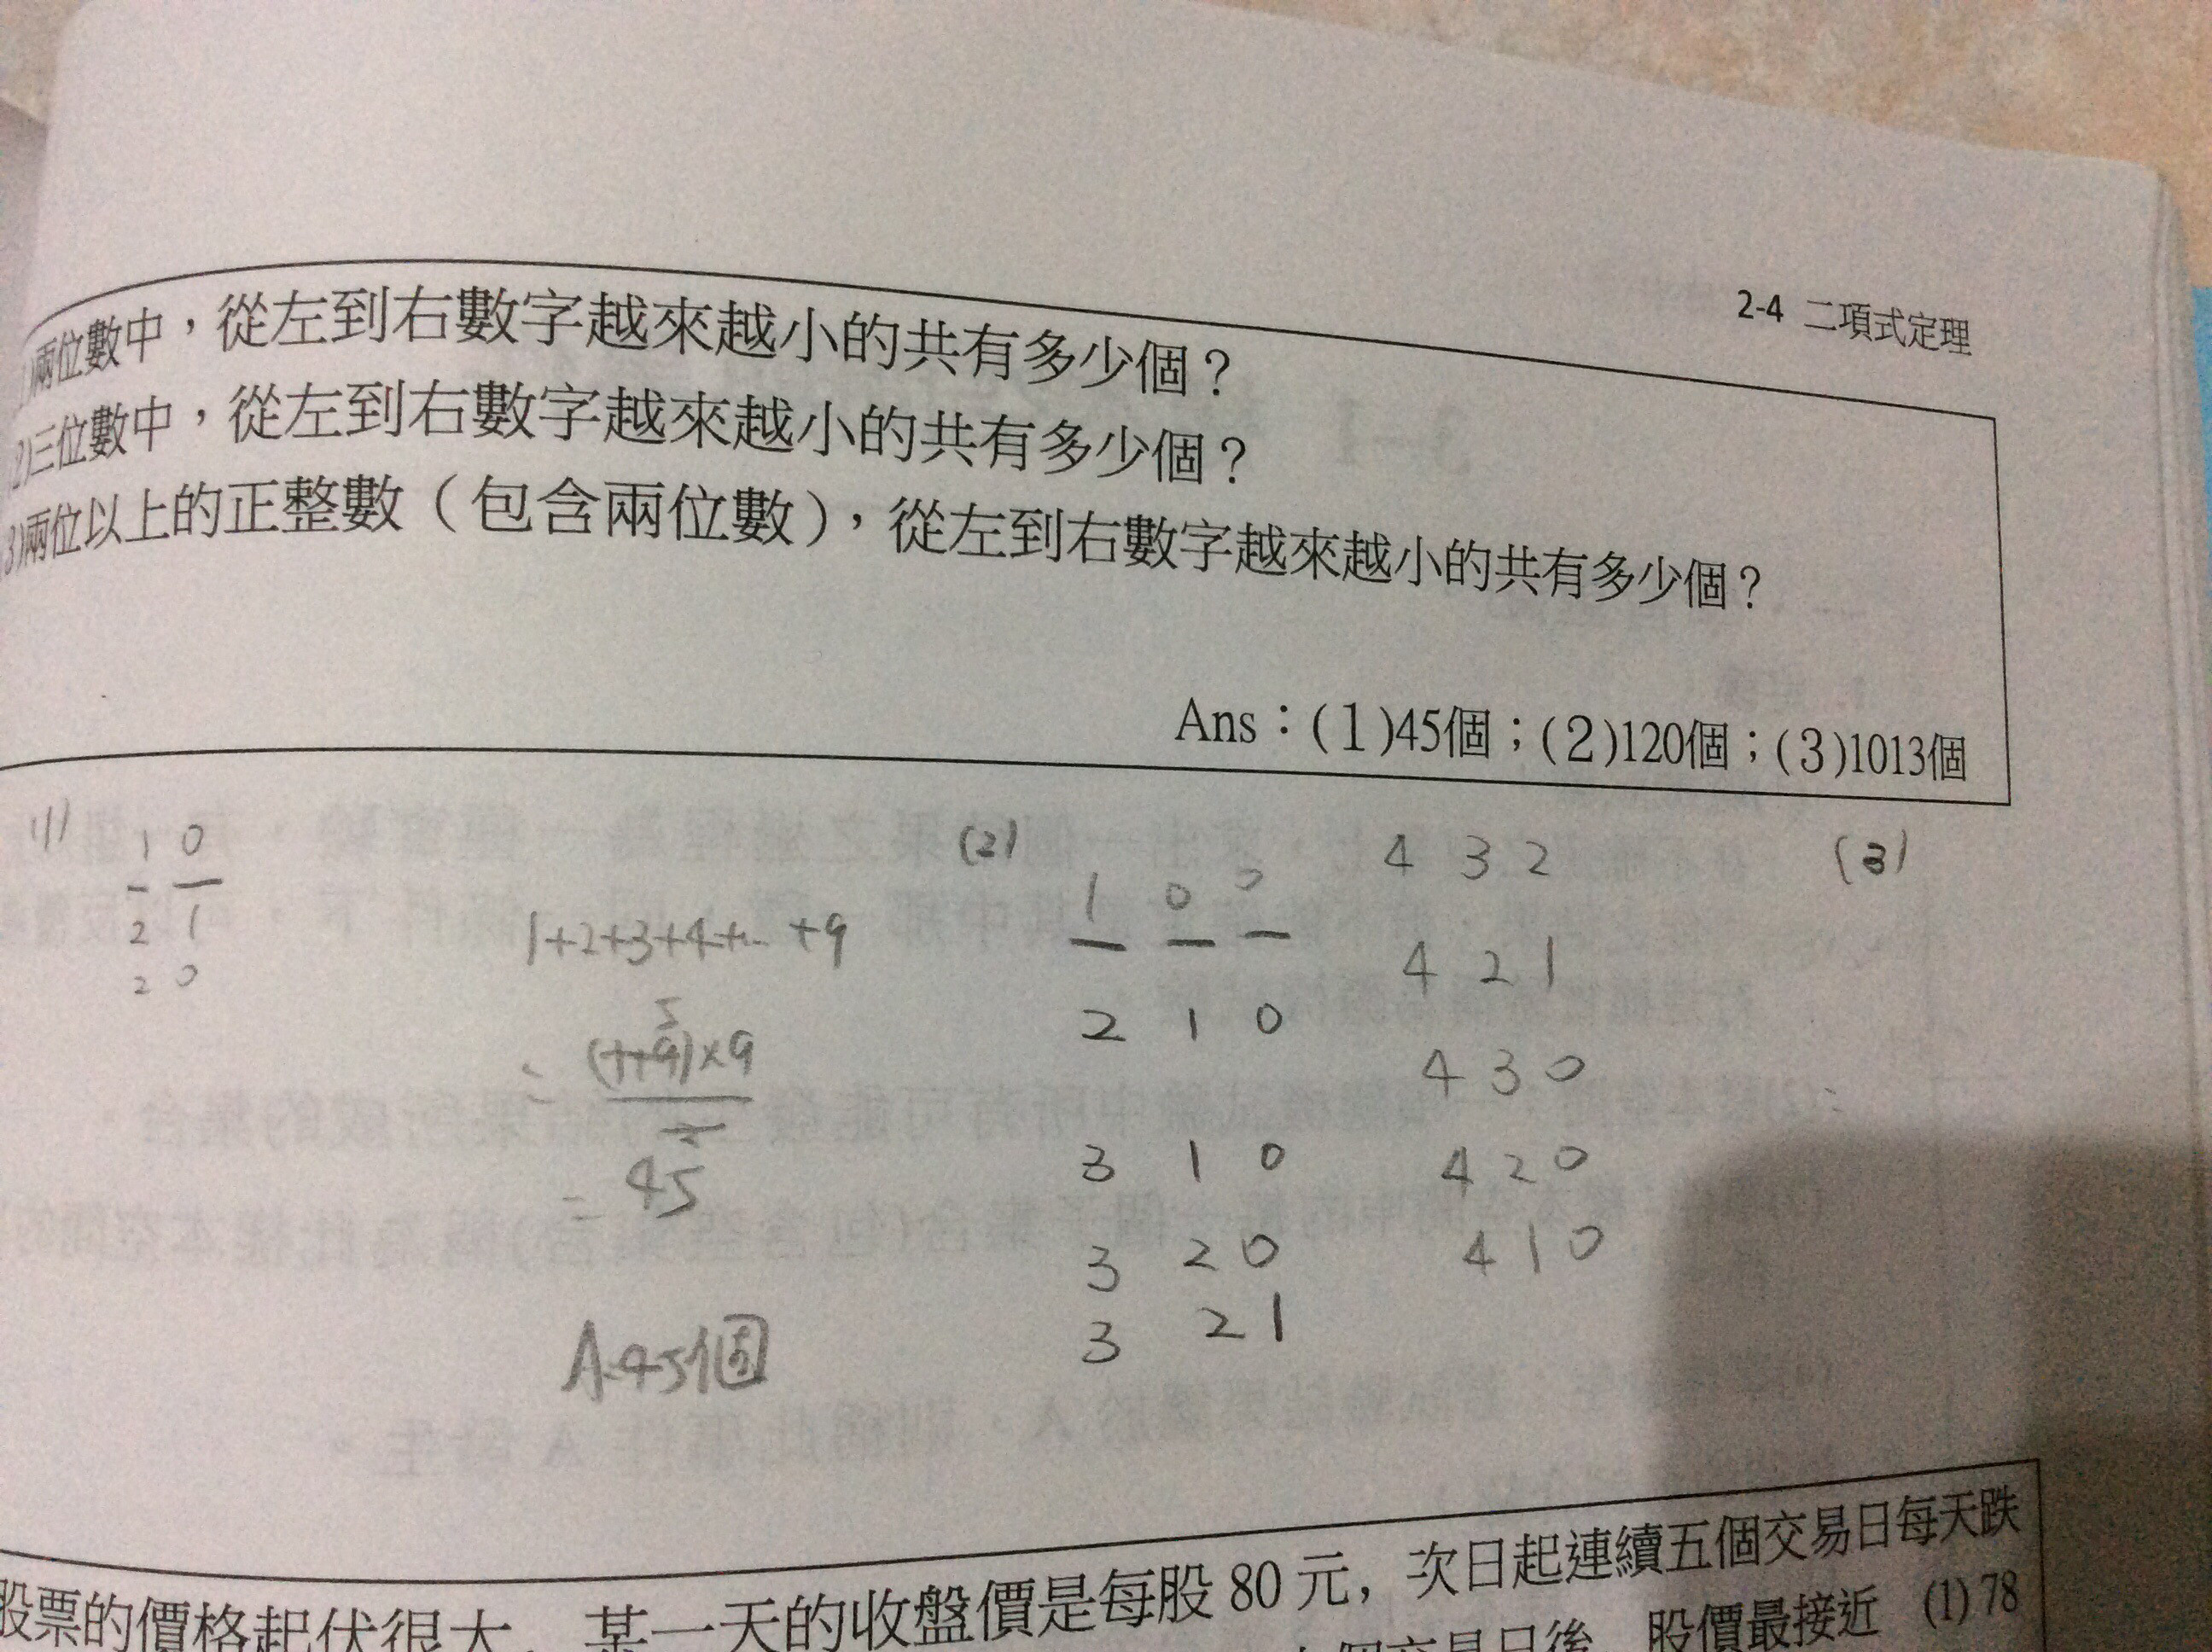 2-4 二項式定理
)兩位數中，從左到右數字越來越小的共有多少個？
2)三位數中，從左到右數字越來越小的共有多少個？
3)兩位以上的正整數（包含兩位數），從左到右數字越來越小的共有多少個？
Ans：(1)45個；(2)120個；(3)1013個
(1)
1 0
2 1
2 0
1+2+3+4+… +9
= (1+9)×9
2
5
= 45
A:45個
(2)
1 0 0
2 1 0
3 1 0
3 2 0
3 2 1
4 3 2
4 2 1
4 3 0
4 2 0
4 1 0
(3)
股票的價格起伏很大，某一天的收盤價是每股 80 元，次日起連續五個交易日每天跌
個交易日後，股價最接近 (1) 78